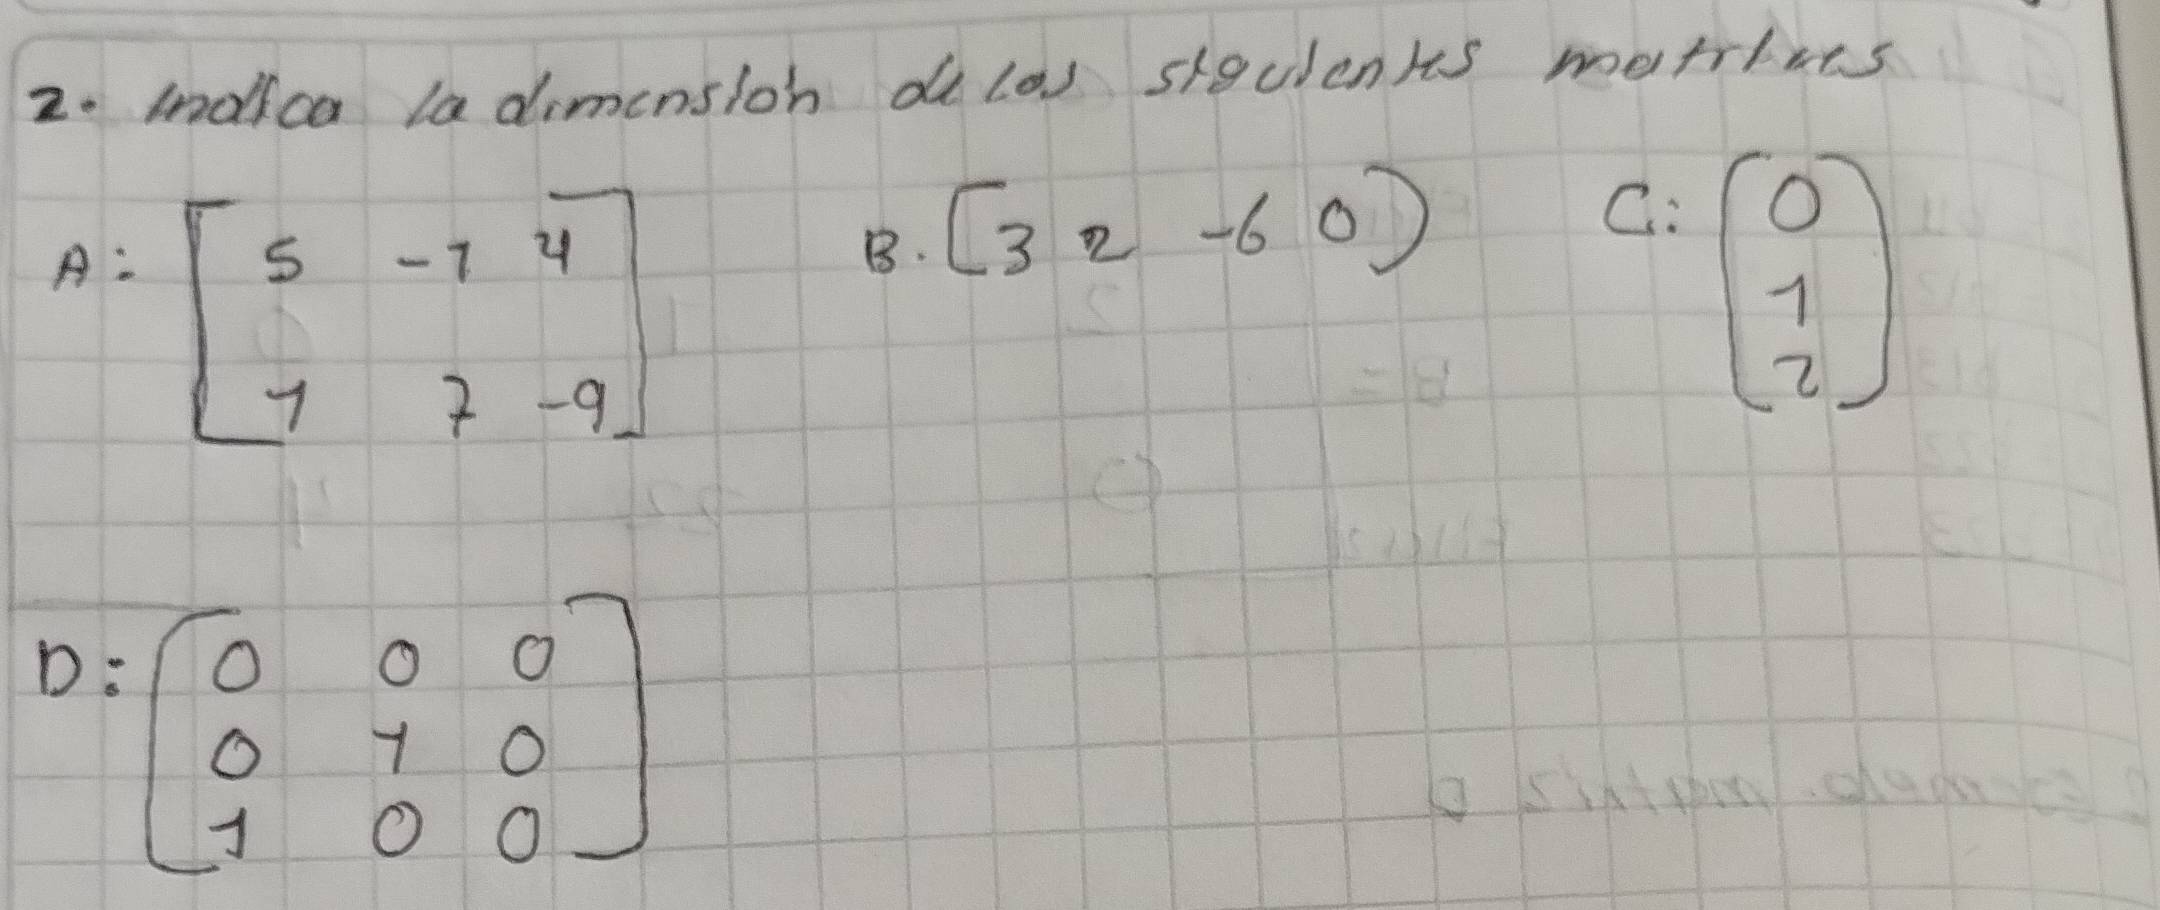 2. indica la dimension de las siguientes matrices
A: [ 5 -1 4 ] B. [3 2 -6 0) C: ( 0 )
1
1 7 -9 2
D: [ 0 0 0 ]
0 1 0
1 0 0